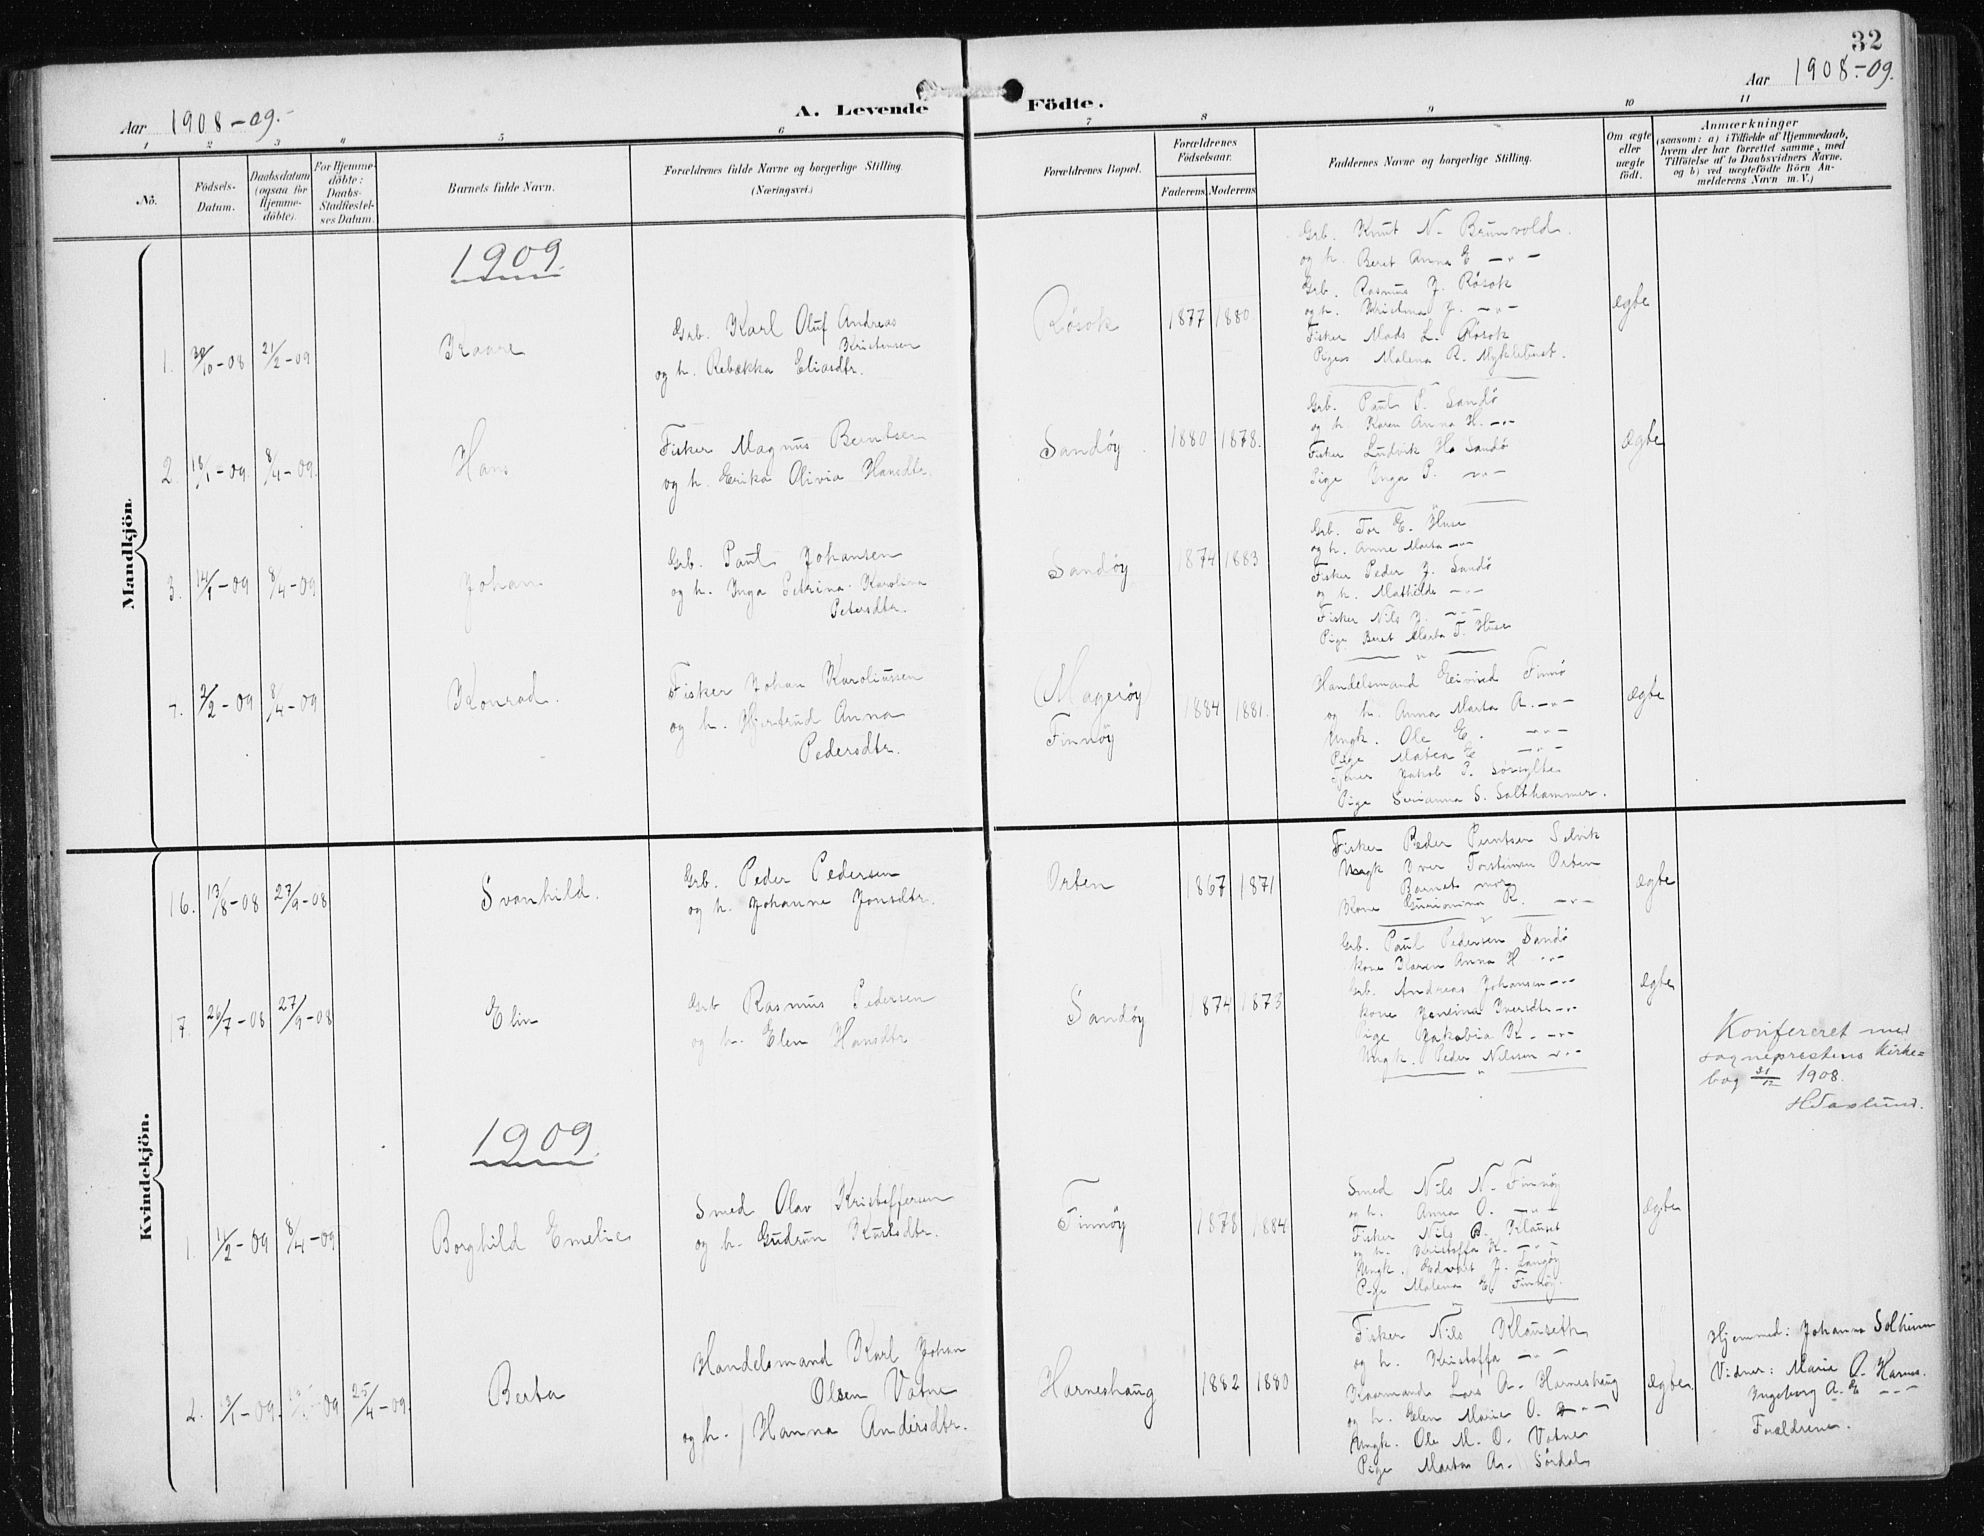 32
Aar 1908-09.
A. Levende Födte.
Aar 1908-09.
1 2 3 4 5 6 7 8 9 10 11
No.
Födsels-Datum.
Daabsdatum (ogsaa for Hjemme-döbte).
For Hjemme-döbte: Daabs-Stadfæstel-ses Datum.
Barnets fulde Navn.
Forældrenes fulde Navne og borgerlige Stilling.
(Næringsvei.)
Forældrenes Bopæl.
Forældrenes Födselsaar.
Faderens Moderens
Faddernes Navne og borgerlige Stilling.
Om ægte eller uægte födt.
Anmærkninger
(saasom: a) i Tilfælde af Hjemmedaab,
hvem der har forrettet samme, med
Tilföielse af to Daabsvidners Navne.
og b) ved uægtefödte Börn An-
melderens Navn m. V.)
Mandkjön.
1909.
1. 30/10-08 21/2-09 Kaare
Grb. Karl Oluf Andreas
Kristensen
og h. Rebekka Eliasdtr.
Røsok 1877 1880
Grb. Knut N. Brunvold.
og h. Beret Anna E -„-
Grb. Rasmus J. Røsok
og h. Kristina J. -„-
Fisker Mads L. Røsok
Pige Malena R. Myklebust.
ægte
2. 18/1-09. 8/4-09. Hans
Fisker Magnus Berntsen
og h. Erika Olivia Hansdtr.
Sandøy 1880 1878.
Grb. Paul P. Sandø
og h. Karen Anna H. -„-
Fisker Ludvik H. Sandø
Pige Inga P. -„-
ægte
3. 14/1-09 8/4-09 Johan
Grb. Paul Johansen
og h. Inga Petrina Karolina
Petersdtr.
Sandøy 1874 1883
Grb. Tor E. Huse
og h. Anne Marta -„-
Fisker Peder J. Sandø
og h. Mathilde -„-
Fisker Nils J. -„-
Pige Beret Marta T. Huse
4. 2/2-09 8/4-09 Konrad.
Fisker Johan Karoliussen
og h. Hjertrud Anna
Pedersdtr.
(Magerøy)
Finnøy
1884 1881.
Handelsmand Eivind Finnø
og h. Anna Marta A. -„-
Ungk. Ole E. -„-
Pige Matea E -„-
Jakob P. Sørsylte
Pige Serianna S. Salthammer.
ægte
Kvindekjön.
16. 13/8-08 27/9-08 Svanhild.
Grb. Peder Pedersen
og h. Johanne Jonsdtr.
Orten 1867 1871
Fisker Peder Berntsen Selvik
Ungk Iver Torsteinsen Orten
Barnets mor
Kone Gurianna K. -„-
ægte
17. 26/7-08 27/9-08 Elin
Grb Rasmus Pedersen
og h. Elen Hansdtr
Sandøy 1874 1873
Grb. Paul Pedersen Sandø
Kone Karen Anna H -„-
Grb. Andreas Johansen -„-
Kone Jendina Iversdtr -„-
Pige Jakobia K. -„-
Ungk. Peder Nilssen -„-
ægte
Konfereret med
sogneprestens kirke=
bog 31/12 1908.
H Taslund.
1909.
1. 1/2-09 8/4-09 Borghild Emelie
Smed Olav Kristoffersen
og h. Gudrun Knutsdtr.
Finnøy 1878 1884
Smed Nils N. Finnøy
og h. Anna O. -„-
Fisker Nils A. Klauset
og h. Kristoffa K. -„-
Ungk. Edvart J. Langøy
Pige Malena E. Finnøy.
ægte
2. 2/1-09. 09 25/4-09. Berta
Handelsmand Karl Johan
Olsen Vatne
og h. Hanna Andersdtr.
Harneshaug 1882 1880
Fisker Nils Klauseth
og h. Kristoffa -„-
Kaarmand Lars A. Harneshaug
og h. Elen Marie O. -„-
Ungk. Ole M. O. Vatne
Pige Marta A. Sørdal
ægte
Hjemmed: Johanna Solheim
Vidner: Marie O. Harnes.
Ingeborg A. E -„-
Forældrene.